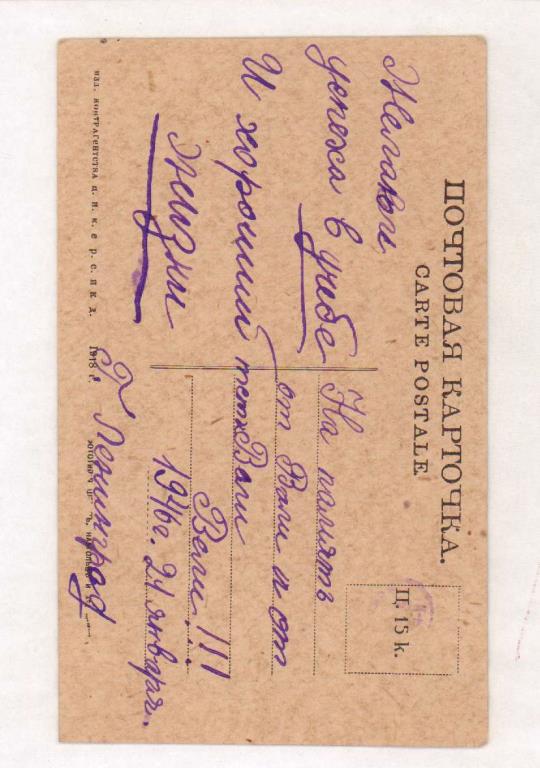 ПОЧТОВАЯ КАРТОЧКА.
CARTE POSTALE
Ц. 15 к.
Желаю
успеха в учебе
И хорошей
жизни
На память
от Вали и от
тети Вали
Вали!!!
1946г. 21 января.
Г Ленинград
изд. контрагентства ц. и. к. е. р. с. и к. д. 1918 г.